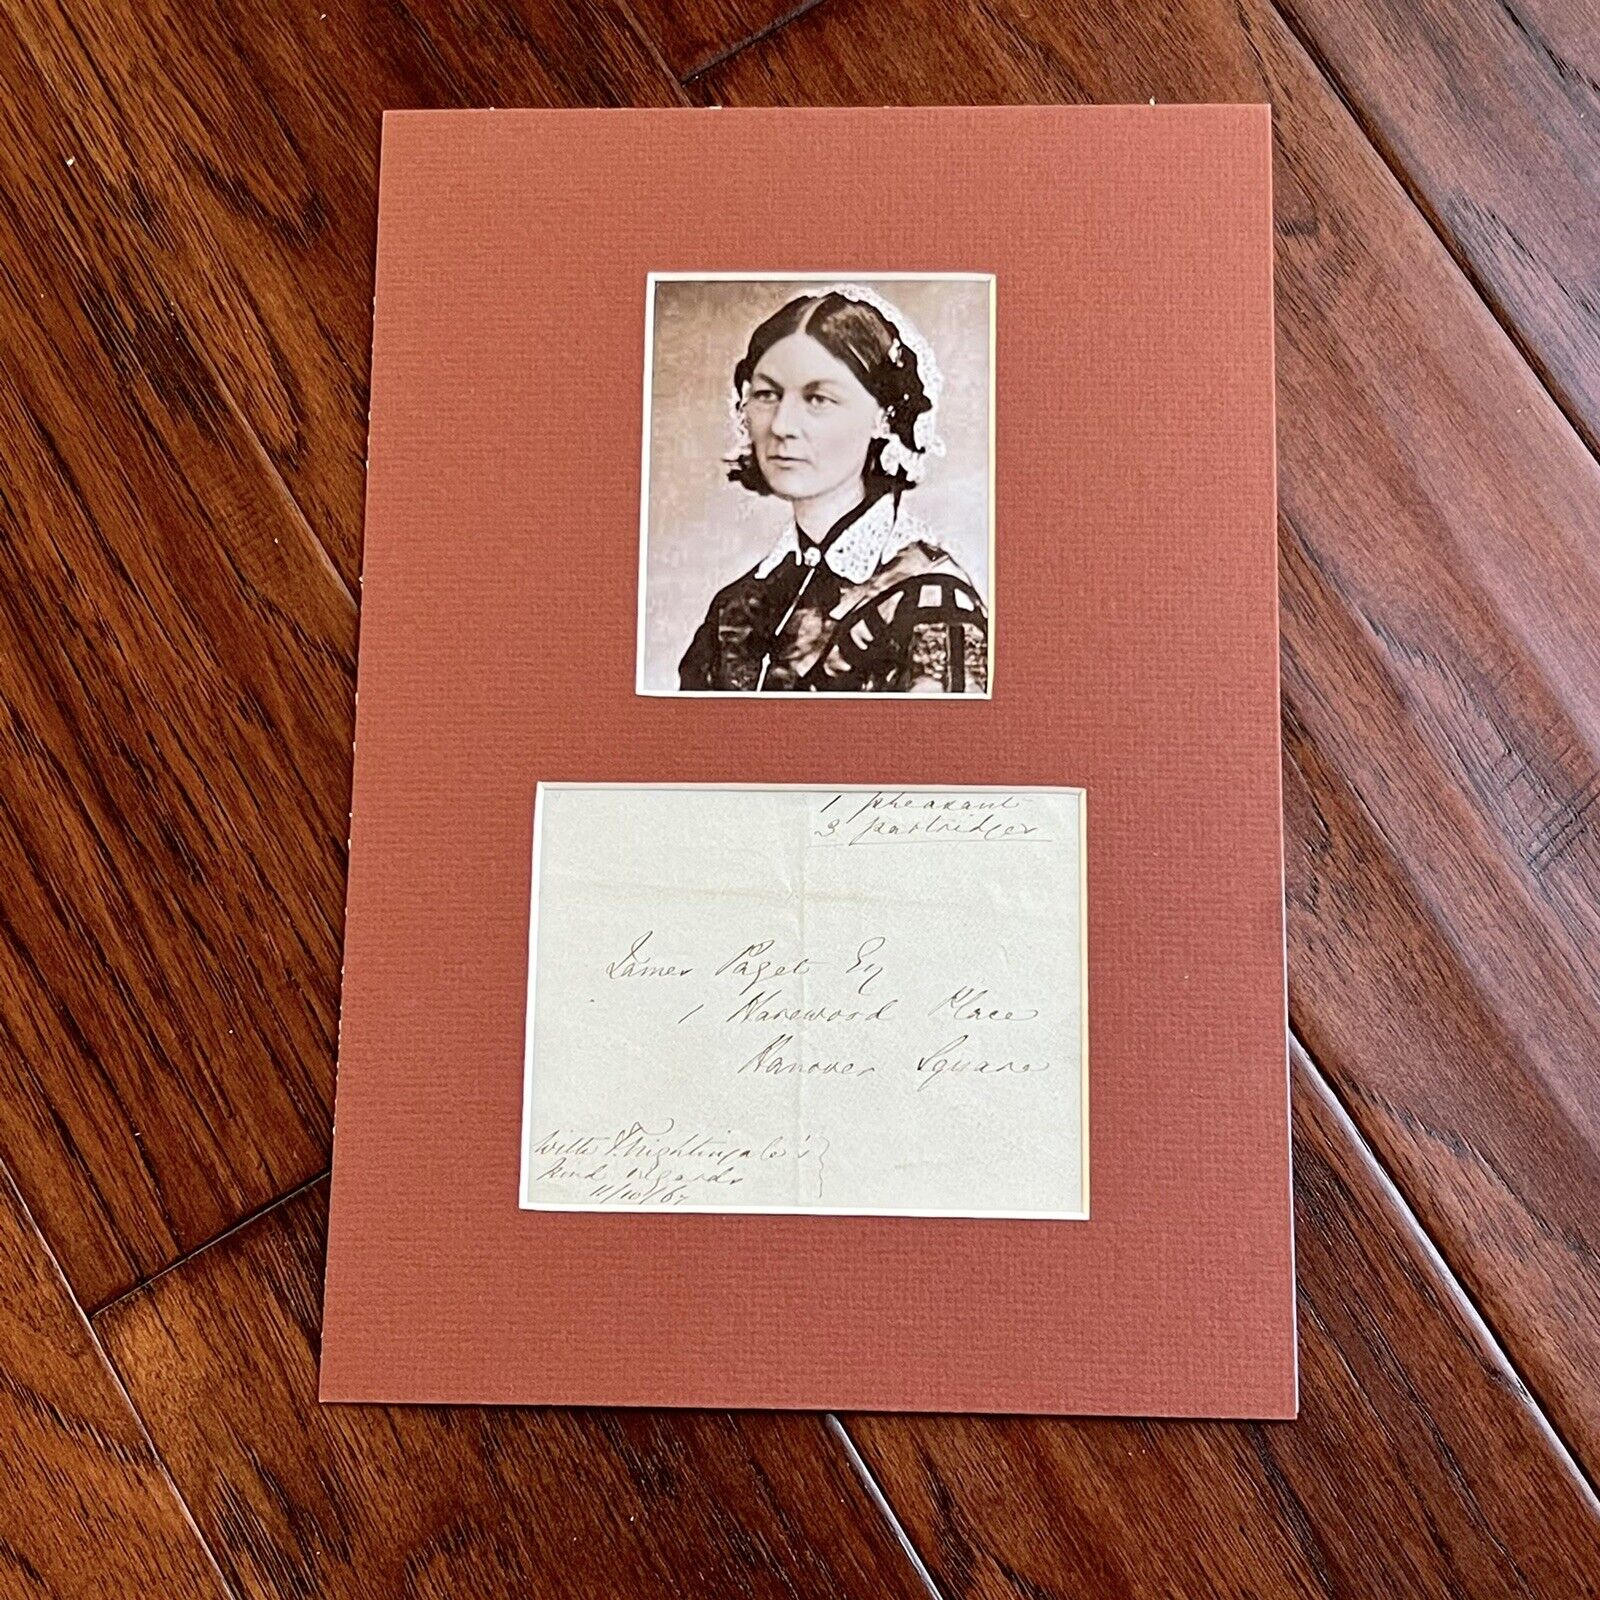 1 pheasant
3 partridges
James Paget Esq
1 Harewood Place
Hanover Square
With F. Nightingale's
kind regards
11/10/67